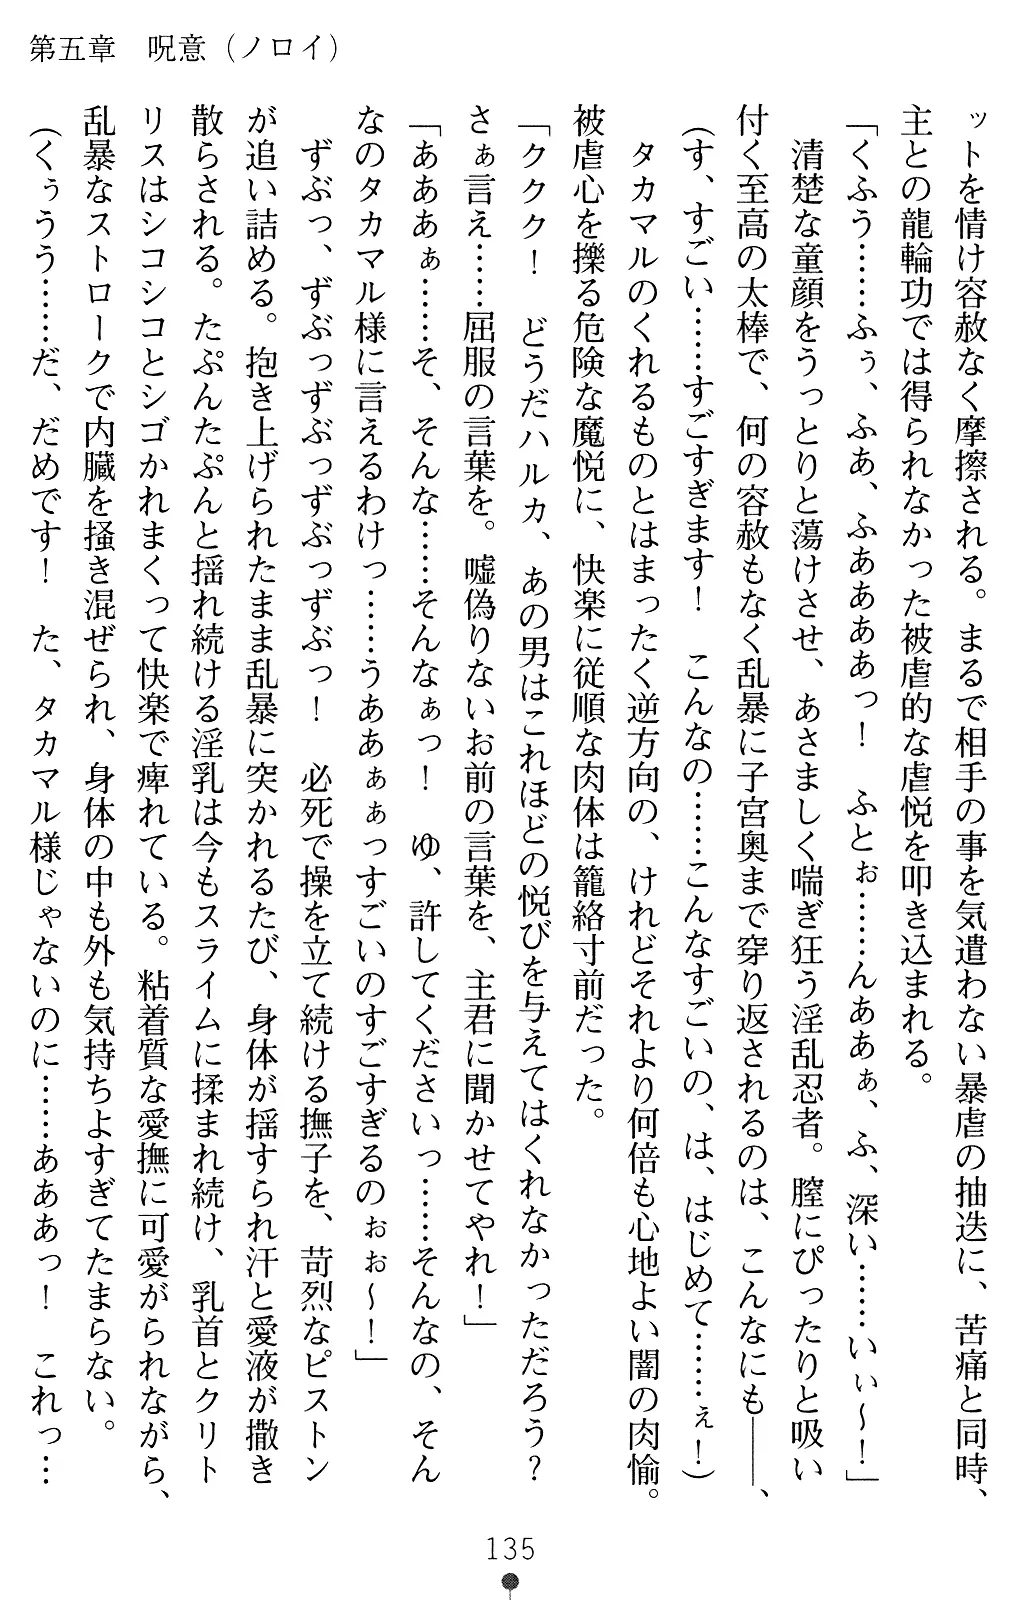 第五章　呪意（ノロイ）
ットを情け容赦なく摩擦される。まるで相手の事を気遣わない暴虐の抽迭に、苦痛と同時、
主との龍輪功では得られなかった被虐的な虐悦を叩き込まれる。
「くふう……ふぅ、ふあ、ふああああっ！　ふとぉ……んああぁ、ふ、深い……いぃ～！」
清楚な童顔をうっとりと蕩けさせ、あさましく喘ぎ狂う淫乱忍者。膣にぴったりと吸い
付く至高の太棒で、何の容赦もなく乱暴に子宮奥まで穿り返されるのは、こんなにも――、
（す、すごい……すごすぎます！　こんなの……こんなすごいの、は、はじめて……ぇ！）
タカマルのくれるものとはまったく逆方向の、けれどそれより何倍も心地よい闇の肉愉。
被虐心を擽る危険な魔悦に、快楽に従順な肉体は籠絡寸前だった。
「ククク！　どうだハルカ、あの男はこれほどの悦びを与えてはくれなかっただろう？
さぁ言え……屈服の言葉を。嘘偽りないお前の言葉を、主君に聞かせてやれ！」
「あああぁ……そ、そんな……そんなぁっ！　ゆ、許してくださいっ……そんなの、そん
なのタカマル様に言えるわけっ……うああぁぁっすごいのすごすぎるのぉぉ～！」
ずぶっ、ずぶっずぶっずぶっずぶっ！　必死で操を立て続ける撫子を、苛烈なピストン
が追い詰める。抱き上げられたまま乱暴に突かれるたび、身体が揺すられ汗と愛液が撒き
散らされる。たぷんたぷんと揺れ続ける淫乳は今もスライムに揉まれ続け、乳首とクリト
リスはシコシコとシゴかれまくって快楽で痺れている。粘着質な愛撫に可愛がられながら、
乱暴なストロークで内臓を掻き混ぜられ、身体の中も外も気持ちよすぎてたまらない。
（くぅうう……だ、だめです！　た、タカマル様じゃないのに……あああっ！　これっ…
135